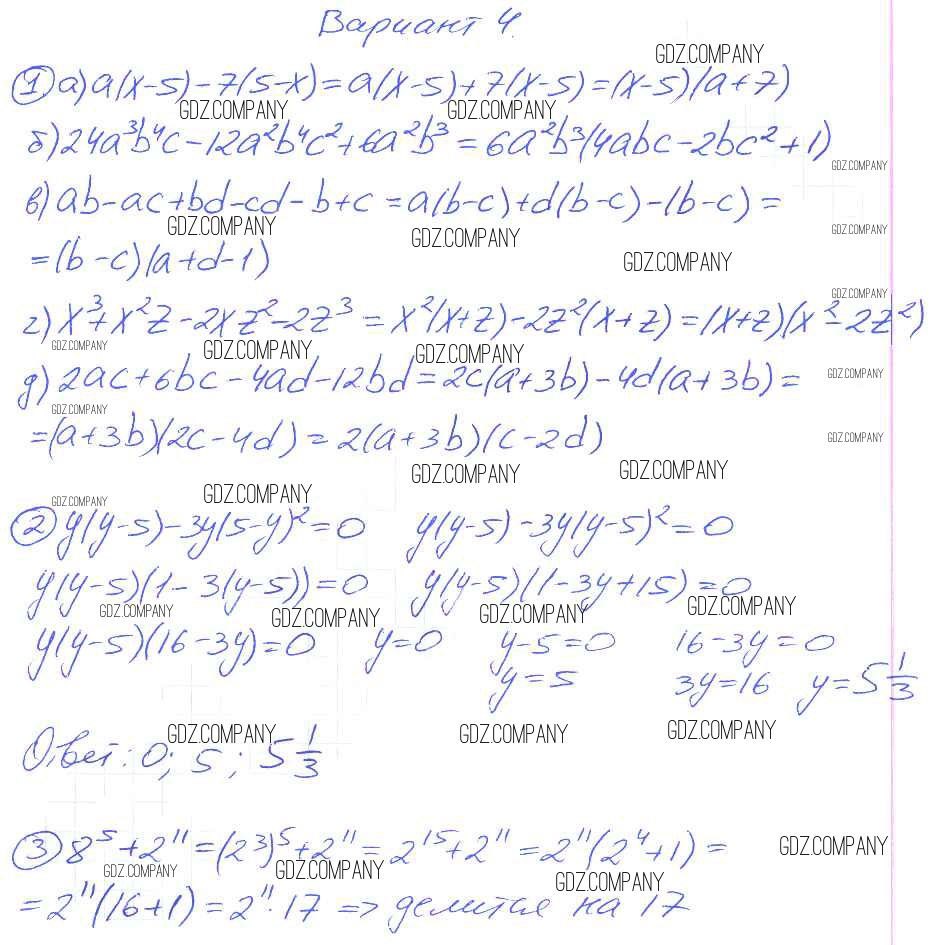 Вариант 4.
GDZ.COMPANY
① а) a(x-5)-7(5-x)=a(x-5)+7(x-5)=(x-5)(a+7)
GDZ.COMPANY GDZ.COMPANY
б) 24a³b⁴c-12a²b⁴c²+6a²b³=6a²b³(4abc-2bc²+1)
GDZ.COMPANY
в) ab-ac+bd-cd-b+c=a(b-c)+d(b-c)-(b-c)=
GDZ.COMPANY GDZ.COMPANY GDZ.COMPANY
=(b-c)(a+d-1)
GDZ.COMPANY
GDZ.COMPANY
г) x³+x²z-2xz²-2z³=x²(x+z)-2z²(x+z)=(x+z)(x²-2z²)
GDZ.COMPANY GDZ.COMPANY GDZ.COMPANY
д) 2ac+6bc-4ad-12bd=2c(a+3b)-4d(a+3b)=
GDZ.COMPANY
GDZ.COMPANY
=(a+3b)(2c-4d)=2(a+3b)(c-2d)
GDZ.COMPANY
GDZ.COMPANY GDZ.COMPANY
GDZ.COMPANY GDZ.COMPANY
② y(y-5)-3y(5-y)²=0 y(y-5)-3y(y-5)²=0
y(y-5)(1-3(y-5))=0 y(y-5)(1-3y+15)=0
GDZ.COMPANY GDZ.COMPANY GDZ.COMPANY GDZ.COMPANY
y(y-5)(16-3y)=0 y=0 y-5=0 16-3y=0
y=5 3y=16 y=5 1/3
GDZ.COMPANY GDZ.COMPANY GDZ.COMPANY
Ответ: 0; 5; 5 1/3
③ 8⁵+2¹¹=(2³)⁵+2¹¹=2¹⁵+2¹¹=2¹¹(2⁴+1)=
GDZ.COMPANY
GDZ.COMPANY GDZ.COMPANY GDZ.COMPANY
=2¹¹(16+1)=2¹¹·17 => делится на 17